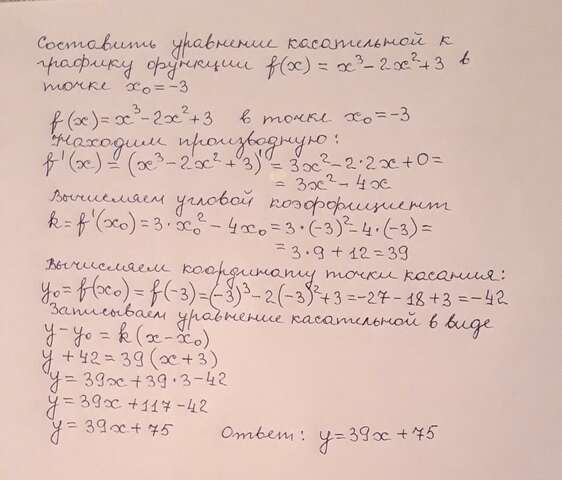 Составить уравнение касательной к
графику функции f(x) = x³ – 2x² + 3 в
точке x₀ = –3
f(x) = x³ – 2x² + 3 в точке x₀ = –3
Находим производную:
f'(x) = (x³ – 2x² + 3)' = 3x² – 2·2x + 0 =
= 3x² – 4x
Вычисляем угловой коэффициент
k = f'(x₀) = 3·x₀² – 4x₀ = 3·(–3)² – 4·(–3) =
= 3·9 + 12 = 39
Вычисляем координату точки касания:
y₀ = f(x₀) = f(–3) = (–3)³ – 2(–3)² + 3 = –27 – 18 + 3 = –42
Записываем уравнение касательной в виде
y – y₀ = k(x – x₀)
y + 42 = 39(x + 3)
y = 39x + 39·3 – 42
y = 39x + 117 – 42
y = 39x + 75 Ответ: y = 39x + 75